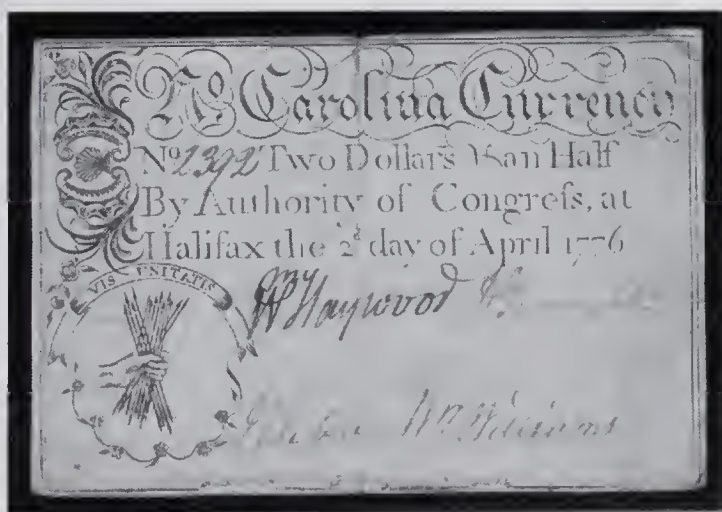 No. Carolina Currency
No 2392 Two Dollars & an Half
By Authority of Congreſs, at
Halifax the 2d day of April 1776
VIS UNITATIS
Wm Haywood
Wm Williams